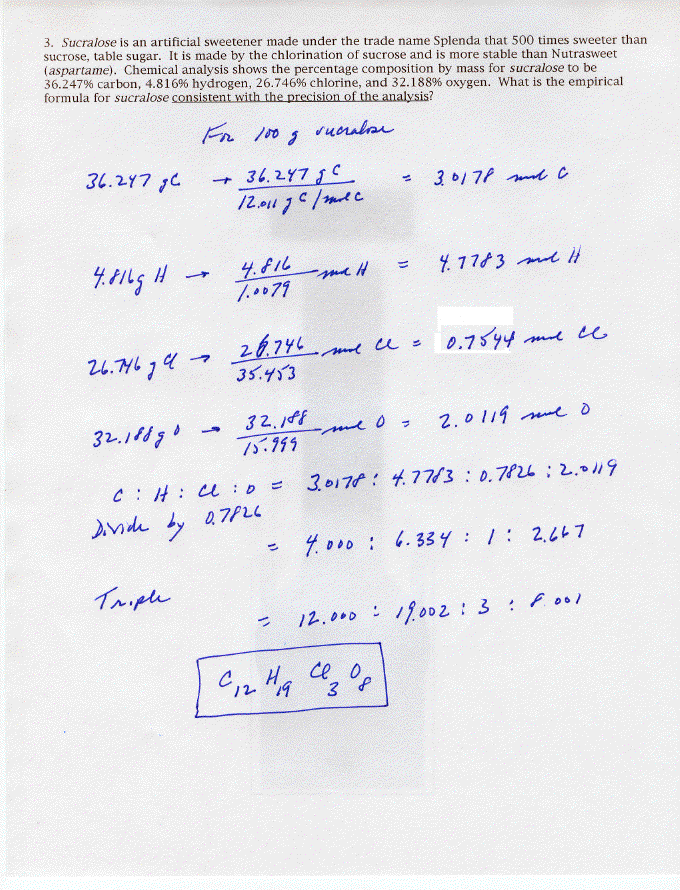 3. Sucralose is an artificial sweetener made under the trade name Splenda that 500 times sweeter than
sucrose, table sugar. It is made by the chlorination of sucrose and is more stable than Nutrasweet
(aspartame). Chemical analysis shows the percentage composition by mass for sucralose to be
36.247% carbon, 4.816% hydrogen, 26.746% chlorine, and 32.188% oxygen. What is the empirical
formula for sucralose consistent with the precision of the analysis?
For 100 g sucralose
36.247 gC → 36.247 g C / 12.011 g C/mol C = 3.0178 mol C
4.816g H → 4.816 / 1.0079 mol H = 4.7783 mol H
26.746 g Cl → 26.746 / 35.453 mol Cl = 0.7544 mol Cl
32.188g O → 32.188 / 15.999 mol O = 2.0119 mol O
C : H : Cl : O = 3.0178 : 4.7783 : 0.7826 : 2.0119
Divide by 0.7826
= 4.000 : 6.334 : 1 : 2.667
Triple
= 12.000 : 19.002 : 3 : 8.001
C12 H19 Cl3 O8